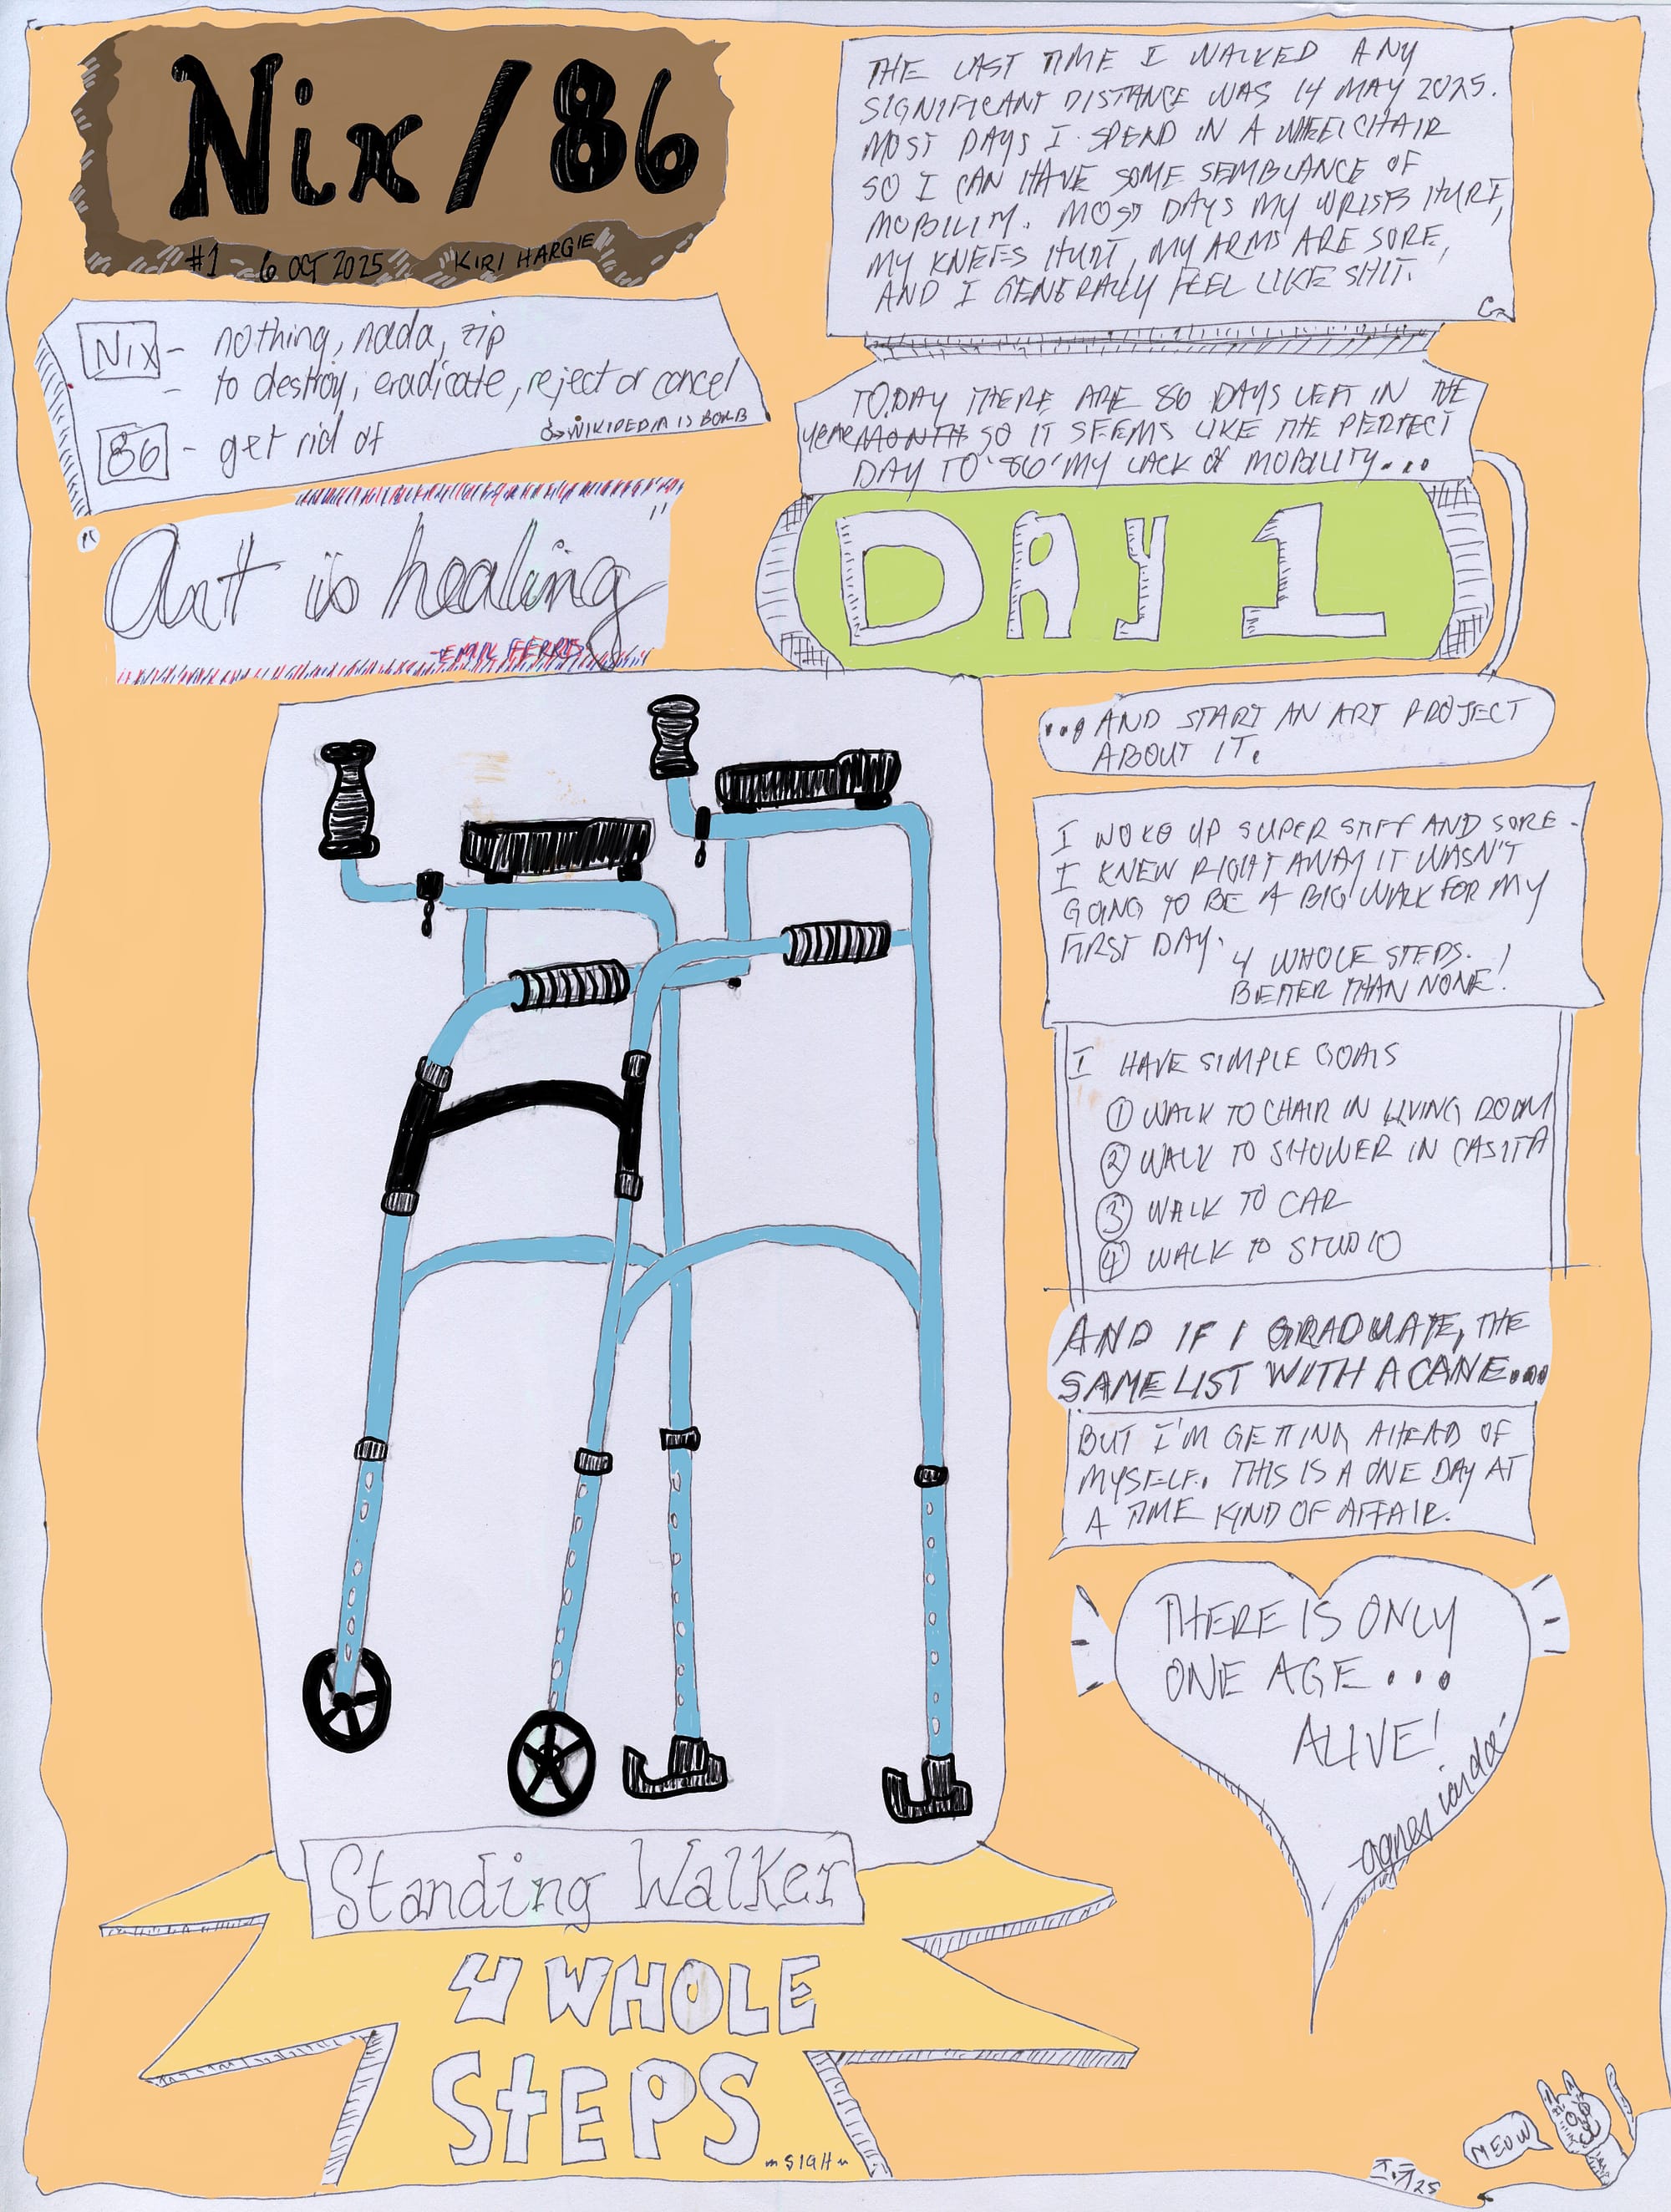 Nix / 86
#1 - 6 OCT 2025 KIRI HARGIE
NIX - nothing, nada, zip
- to destroy, eradicate, reject or cancel
86 - get rid of
WIKIPEDIA IS BOMB
"Art is healing"
-EMIL FERRIS
THE LAST TIME I WALKED ANY
SIGNIFICANT DISTANCE WAS 14 MAY 2025.
MOST DAYS I SPEND IN A WHEELCHAIR
SO I CAN HAVE SOME SEMBLANCE OF
MOBILITY. MOST DAYS MY WRISTS HURT,
MY KNEES HURT, MY ARMS ARE SORE,
AND I GENERALLY FEEL LIKE SHIT.
TODAY THERE ARE 86 DAYS LEFT IN THE
YEAR MONTH SO IT SEEMS LIKE THE PERFECT
DAY TO '86' MY LACK OF MOBILITY...
DAY 1
...AND START AN ART PROJECT
ABOUT IT.
I WOKE UP SUPER STIFF AND SORE.
I KNEW RIGHT AWAY IT WASN'T
GOING TO BE A BIG WALK FOR MY
FIRST DAY.
4 WHOLE STEPS.
BETTER THAN NONE!
I HAVE SIMPLE GOALS
① WALK TO CHAIR IN LIVING ROOM
② WALK TO SHOWER IN CASITA
③ WALK TO CAR
④ WALK TO STUDIO
AND IF I GRADUATE, THE
SAME LIST WITH A CANE...
BUT I'M GETTING AHEAD OF
MYSELF. THIS IS A ONE DAY AT
A TIME KIND OF AFFAIR.
THERE IS ONLY
ONE AGE...
ALIVE!
-agnes varda-
Standing Walker
4 WHOLE
STEPS
~SIGH~
MEOW
25